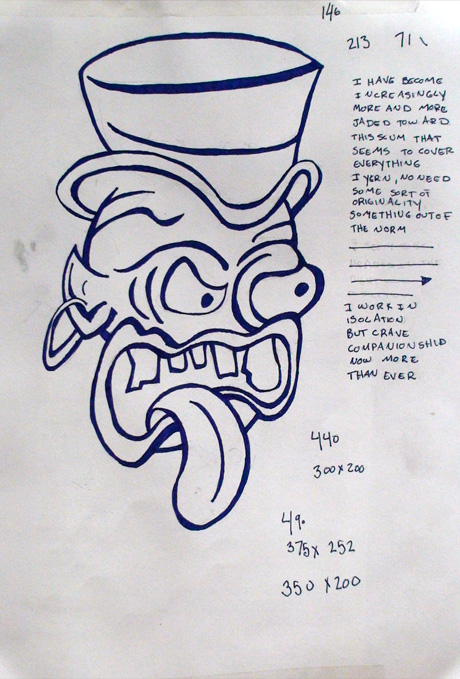 146
213 71
I HAVE BECOME
INCREASINGLY
MORE AND MORE
JADED TOWARD
THIS SCUM THAT
SEEMS TO COVER
EVERYTHING
I YERN, NO NEED
SOME SORT OF
ORIGINALITY
SOMETHING OUT OF
THE NORM
I WORK IN
ISOLATION
BUT CRAVE
COMPANIONSHIP
NOW MORE
THAN EVER
440
300 X 200
49.
375 X 252
350 X 200